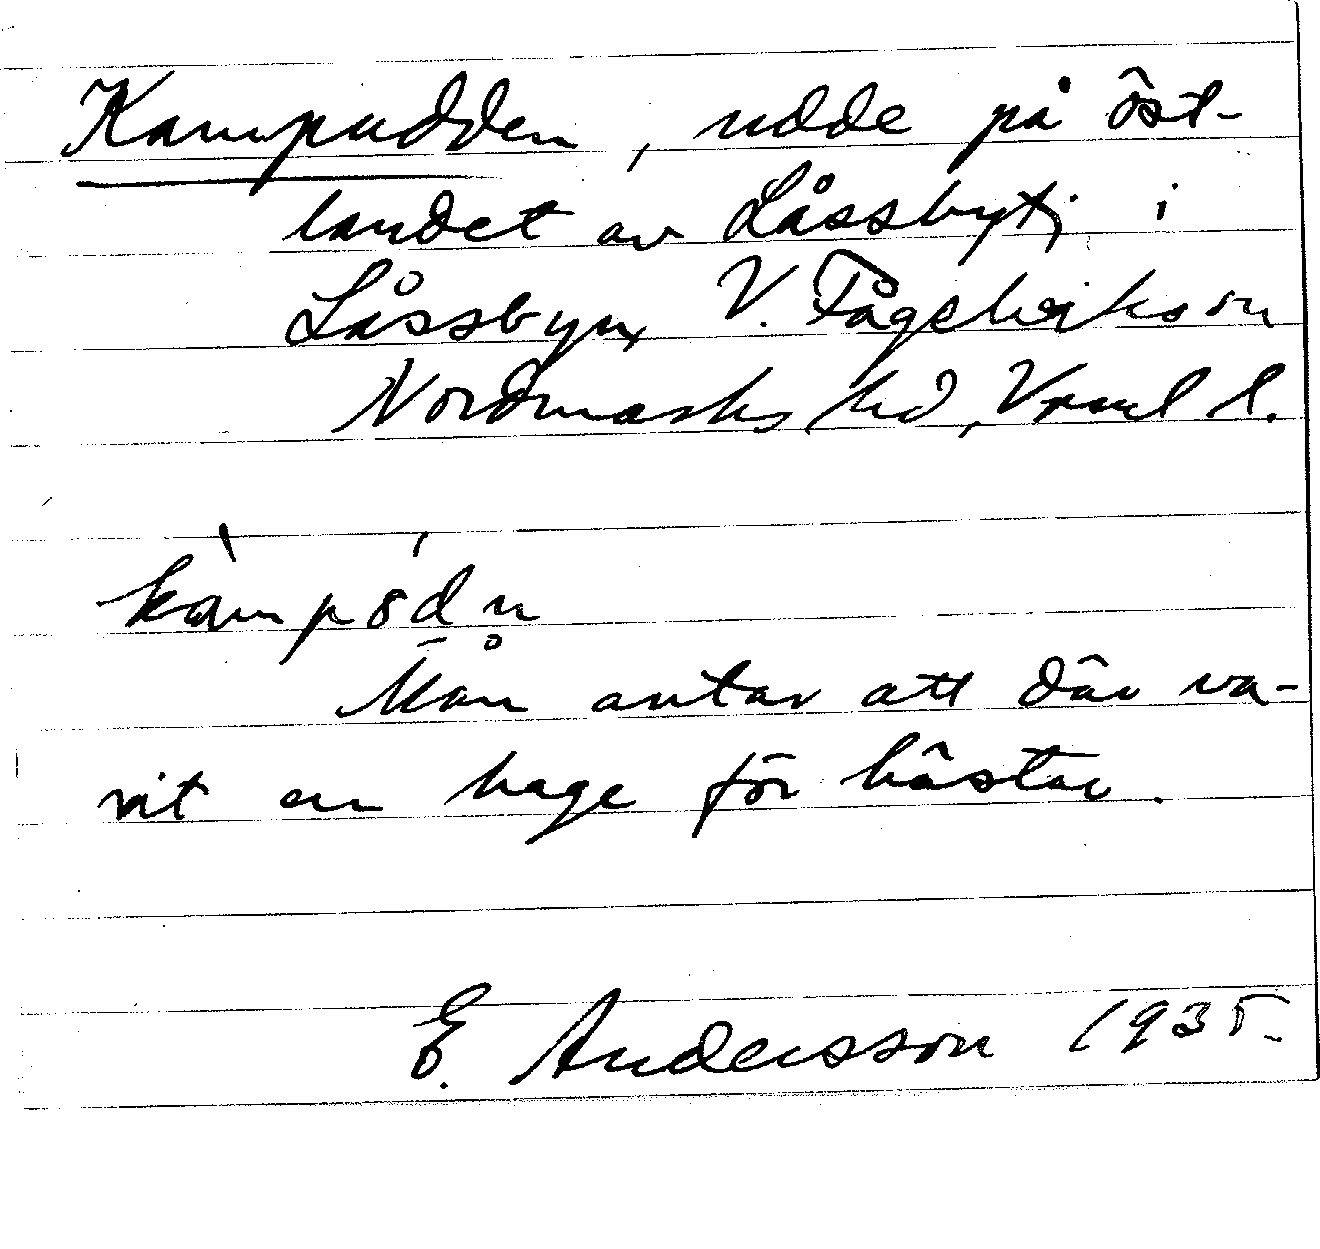 Kampudden, udde på öst-
landet av Låssbytj. i
Låssbyn, V. Fågelviks sn
Nordmarks hd, Vrml l.
kàmpódn
Man antar att där va-
rit en hage för hästar.
E. Andersson 1935.